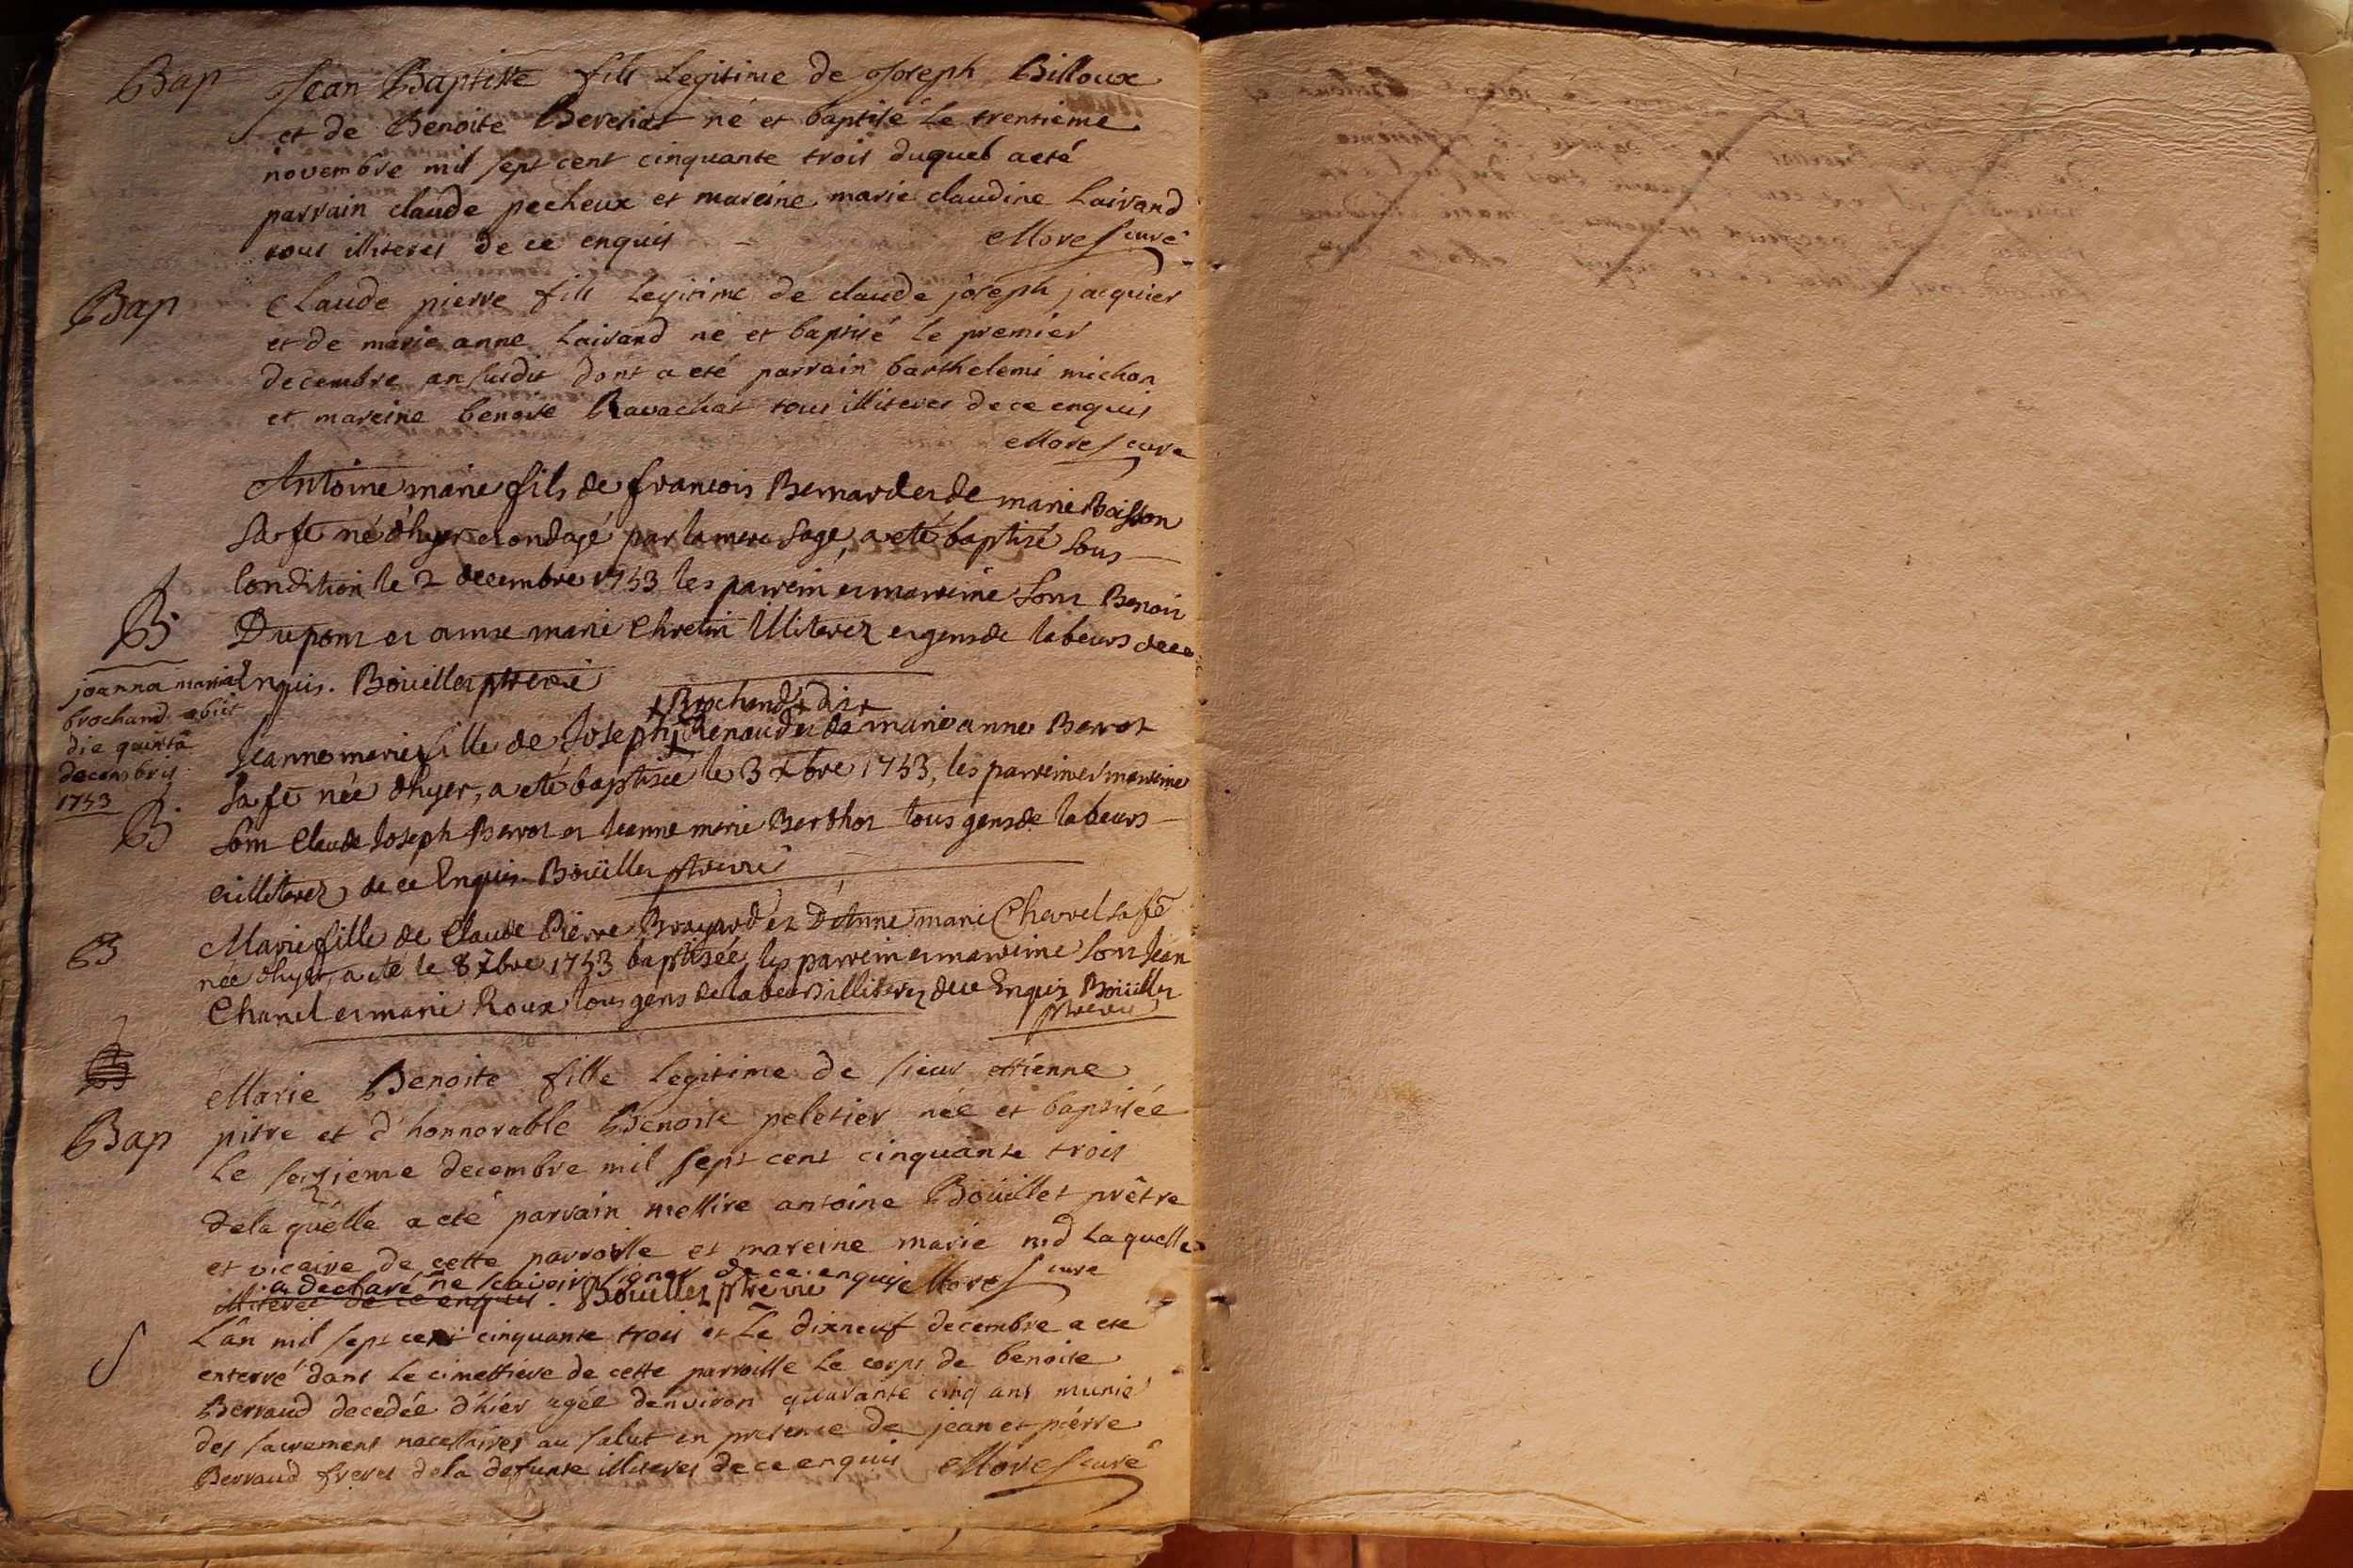 Bap
Jean Baptiste fils legitime de joseph Billoux
et de Benoite Berchat né et baptisé le trentieme
novembre mil sept cent cinquante trois duquel a eté
parrain claude pecheux et mareine marie claudine Lairand
tous illiteres de ce enquis Mores curé
Bap
Claude pierre fils legitime de claude joseph jacquier
et de marie anne Lairand né et baptisé le premier
decembre an susdit dont a eté parrain barthelemi michon
et mareine benoite Ravachat tous illiteres de ce enquis
Mores curé
Antoine marie fils de francois Bernard et de marie Boisson
sa fe né d'hyer et ondayé par la mere sage, a eté baptizé sous
B
condition le 2 decembre 1753 les parrein et marreine sont Benoit
Dupont et anne marie Chretin illiterez et gens de labeurs de ce
Enquis. Boüillet ptre vic
joanna maria
brochand obiit
die quinta
decembris
1753
+ Brochand dit +
Jeanne marie fille de Joseph + Renaud et de marie anne Berrot
sa fe née d'hyer, a eté baptisée le 3 xbre 1753, les parrein et marreine
B
sont Claude Joseph Berrot et Jeanne marie Berthot tous gens de labeurs
et illiterez de ce Enquis. Boüillet ptre vic
B
Marie fille de Claude Pierre Brayard et D'Anne marie Charvel sa fe
née d'hyer, a eté le 8 xbre 1753 baptisée, les parrein et marreine sont Jean
Charvel et marie Roux tous gens de labeurs illiterez de ce Enquis Boüillet
ptre vic
Marie Benoite fille legitime de sieur etienne
Bap
pitre et d'honnorable Benoite peletier née et baptisée
le seizieme decembre mil sept cent cinquante trois
de la quelle a eté parrain messire antoine Boüillet prêtre
et vicaire de cette parroisse et mareine marie laquelle
a declaré ne scavoir signer de ce enquise Mores curé
illiteres de ce enquis. Boüillet ptre vic
S
L'an mil sept cent cinquante trois et Le dixneuf decembre a eté
enterré dans le cimettiere de cette parroisse le corps de benoite
Berraud decedée d'hier agée d'environ quarante cinq ans munie
des sacremens necessaires au salut en presence de jean et pierre
Berraud freres de la defunte illiteres de ce enquis Mores curé